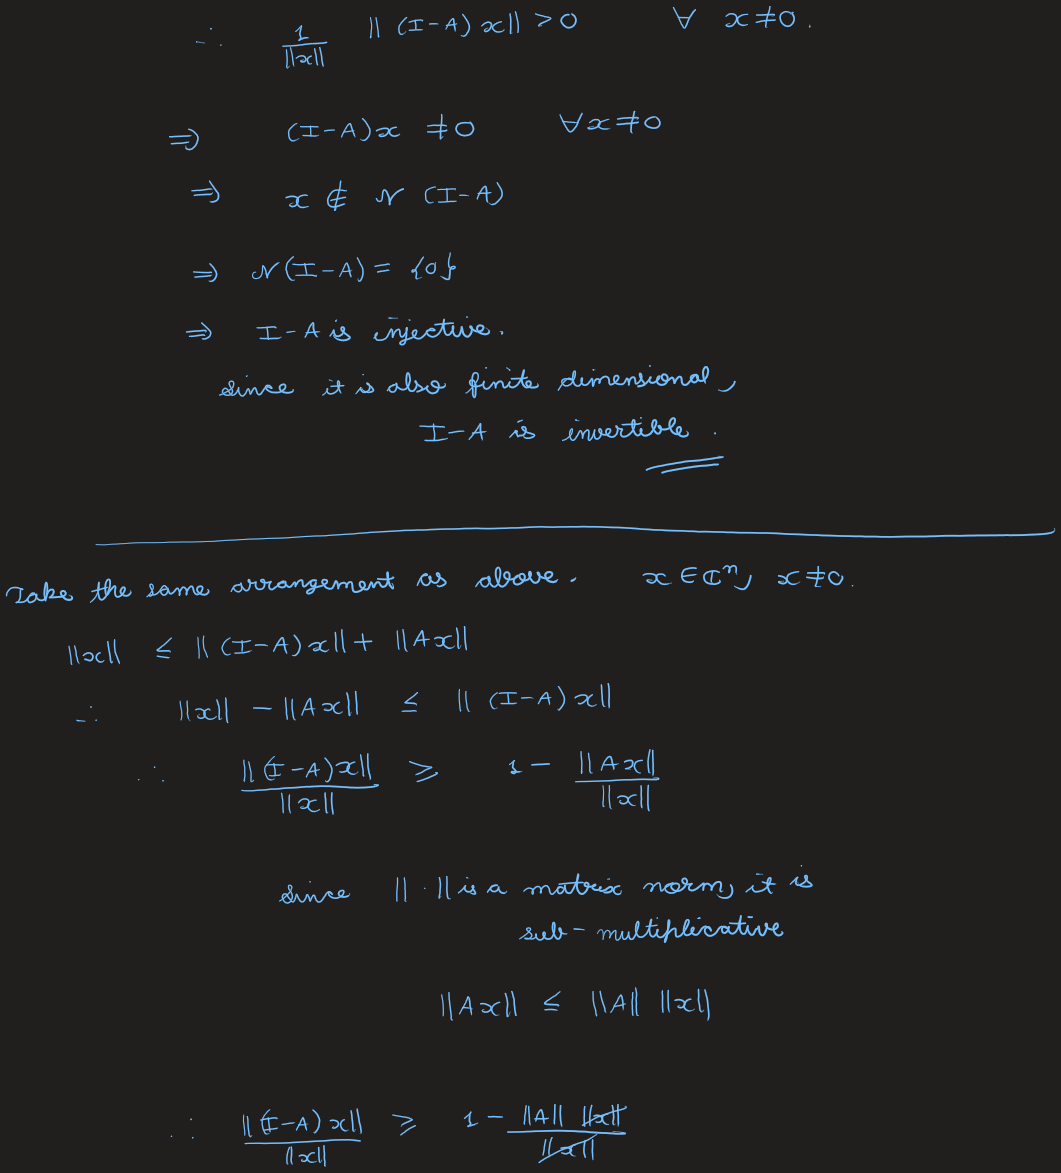 ∴ 1/||x|| || (I-A) x|| > 0 ∀ x≠0.
⇒ (I-A)x ≠0 ∀x≠0
⇒ x ∉ N (I-A)
⇒ N(I-A) = {0}
⇒ I-A is injective.
since it is also finite dimensional,
I-A is invertible.
Take the same arrangement as above. x∈ℂⁿ, x≠0.
||x|| ≤ || (I-A)x|| + ||Ax||
∴ ||x|| - ||Ax|| ≤ || (I-A)x||
∴ ||(I-A)x||/||x|| ≥ 1 - ||Ax||/||x||
since ||·|| is a matrix norm, it is
sub-multiplicative
||Ax|| ≤ ||A|| ||x||
∴ ||(I-A)x||/||x|| ≥ 1 - ||A|| ||x||/||x||